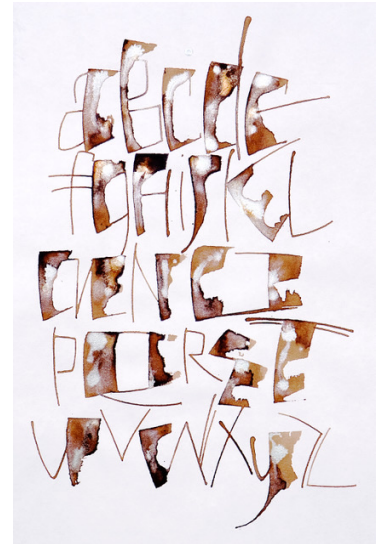 abcde
fghijkl
mno
pqrst
uvwxyz